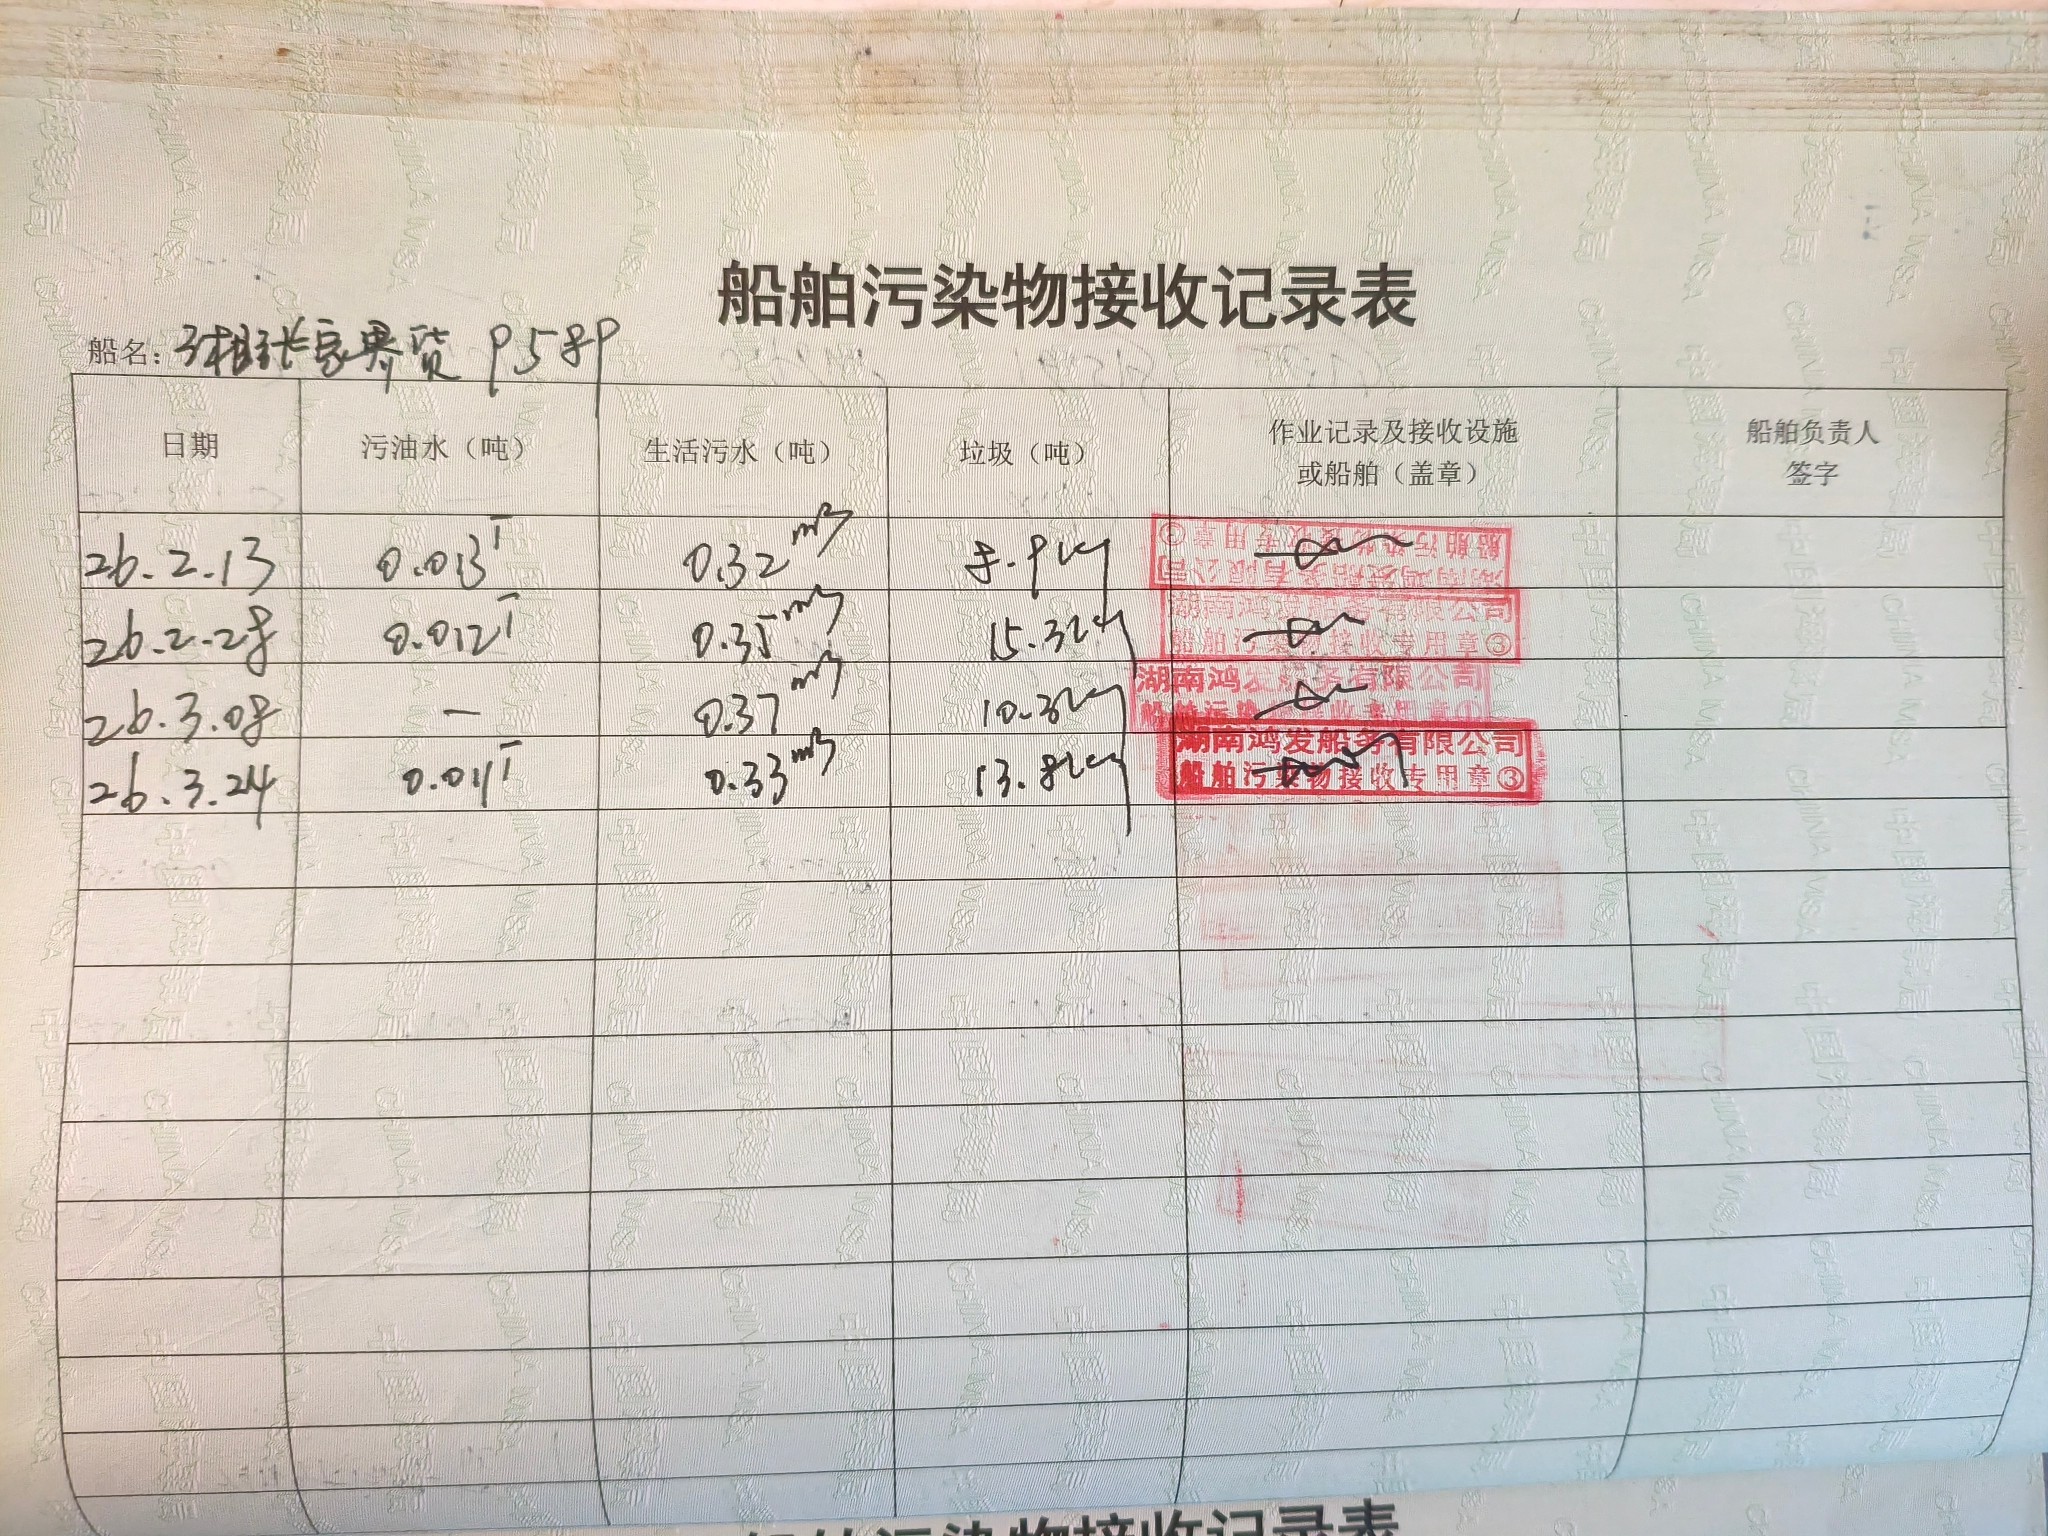 船舶污染物接收记录表
船名：湘张家界货 9589
日期 污油水（吨） 生活污水（吨） 垃圾（吨） 作业记录及接收设施或船舶（盖章） 船舶负责人签字
26.2.13 0.013T 0.32m³ 8.9kg 湖南鸿发船务有限公司 船舶污染物接收专用章②
26.2.28 0.012T 0.35m³ 15.3kg 湖南鸿发船务有限公司 船舶污染物接收专用章③
26.3.08 — 0.37m³ 10.3kg 湖南鸿发船务有限公司 船舶污染物接收专用章①
26.3.24 0.011T 0.33m³ 13.8kg 湖南鸿发船务有限公司 船舶污染物接收专用章③
船舶污染物接收记录表